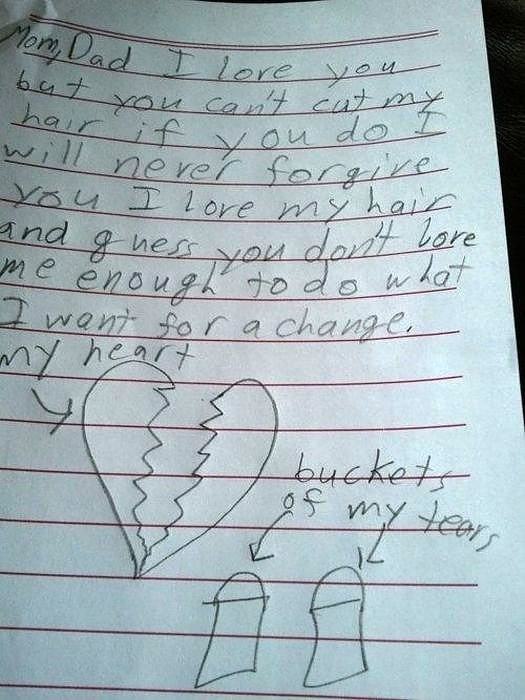 Mom, Dad I love you
but you can't cut my
hair if you do I
will never forgive
you I love my hair
and guess you don't love
me enough to do what
I want for a change.
my heart
buckets
of my tears